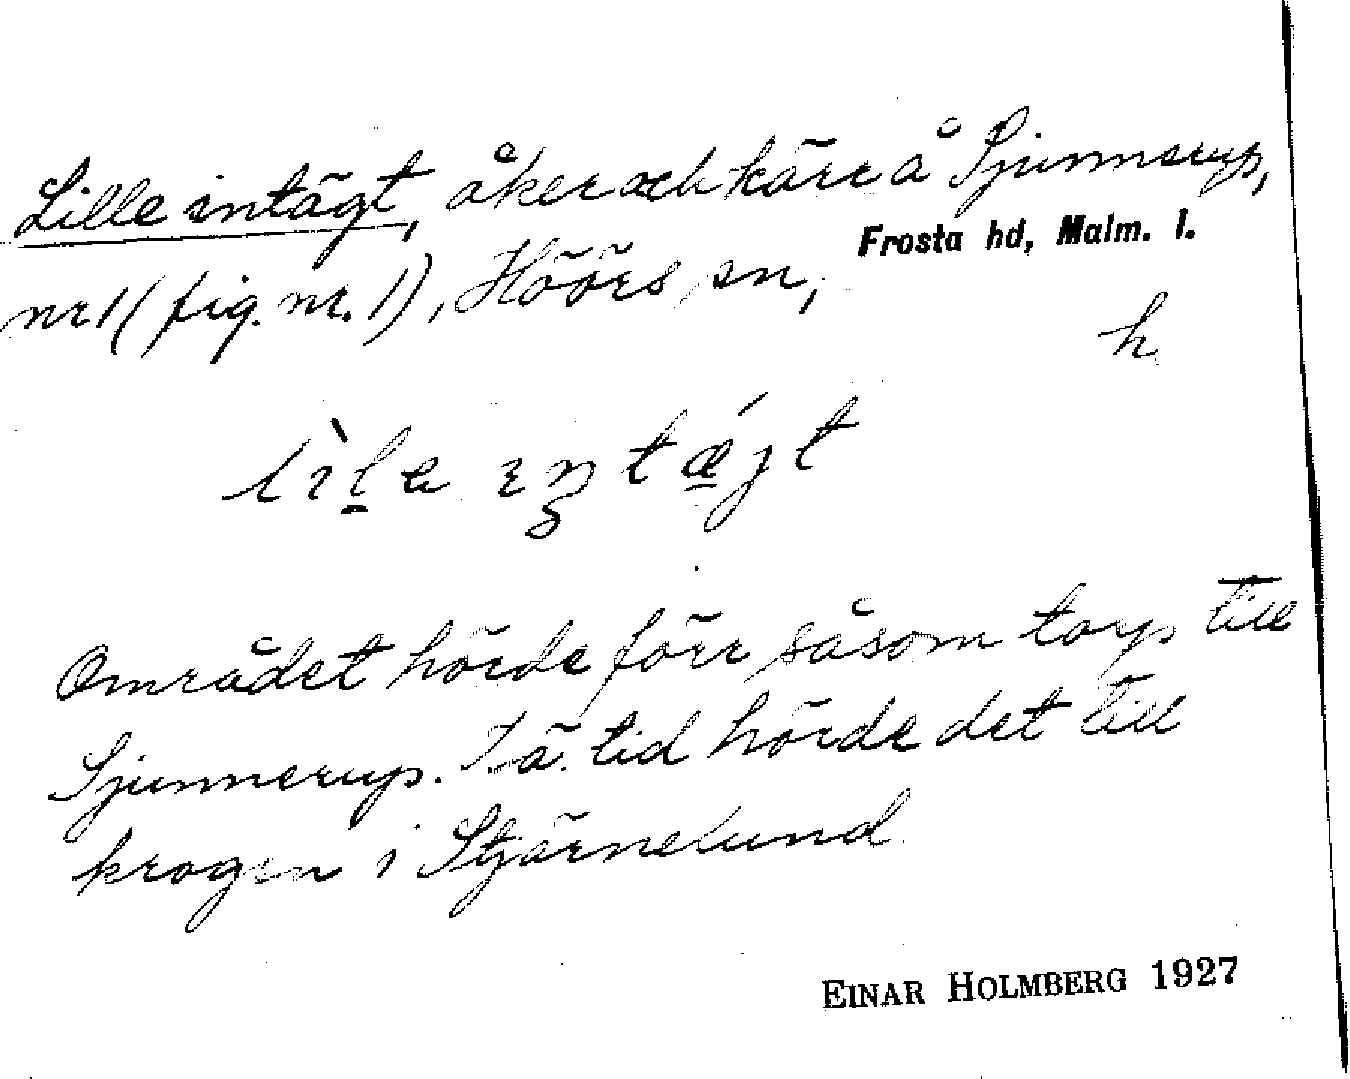 Lille intägt, åker och kärr å Sjunnerup,
Frosta hd, Malm. l.
nr 1 (fig. nr. 1), Höörs sn,
h
Området hörde förr såsom torp till
Sjunnerup. I ä. tid hörde det till
krogen i Stjärnelund
EINAR HOLMBERG 1927